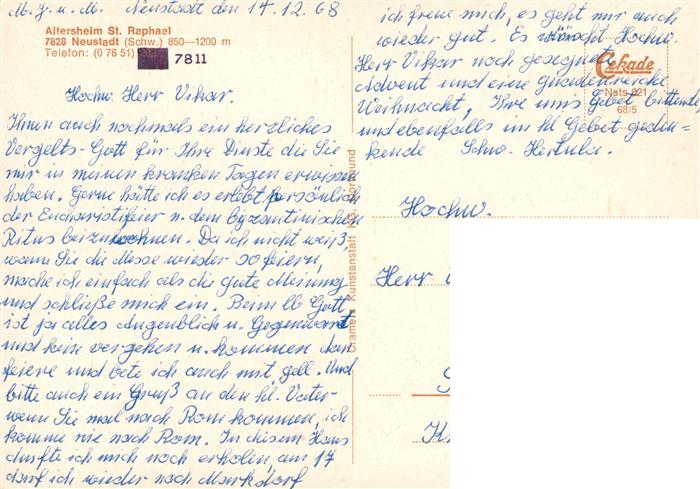 M. J. u. M. Neustadt den 14.12.68
Altersheim St. Raphael
7828 Neustadt (Schw.) 850—1200 m
Telefon: (0 76 51) 7811
Hochw. Herr Vikar.
Ihnen auch nochmals ein herzliches
Vergelts-Gott für Ihre Dienste die Sie
mir in meinen kranken Tagen erwiesen
haben. Gerne hätte ich es erlebt persönlich
der Eucharistifeier n. dem byzantinischen
Ritus beizuwohnen. Da ich nicht weiß,
wann Sie die Messe wieder so feiern,
mache ich einfach als die gute Meinung
und schließe mich ein. Beim lb Gott
ist ja alles Augenblick u. Gegenwart
und kein vergehen u. kommen, dan
feiere und bete ich auch mit, gell. Und
bitte auch ein Gruß an den hl. Vater
wenn Sie mal nach Rom kommen, ich
komme nie nach Rom. In diesem Haus
durfte ich mich noch erholen, am 17
darf ich wieder nach Markdorf
ich freue mich, es geht mir auch
wieder gut. Es wünscht Hochw.
Herr Vikar noch gesegnete
Advent und eine gnadenreiche
Weihnacht, Ihre ums Gebet bittende
und ebenfalls im hl Gebet geden-
kende Schw. Hertula.
Cekade
Nsts 921
68/5
Cramers Kunstanstalt KG Dortmund
Hochw.
Herr